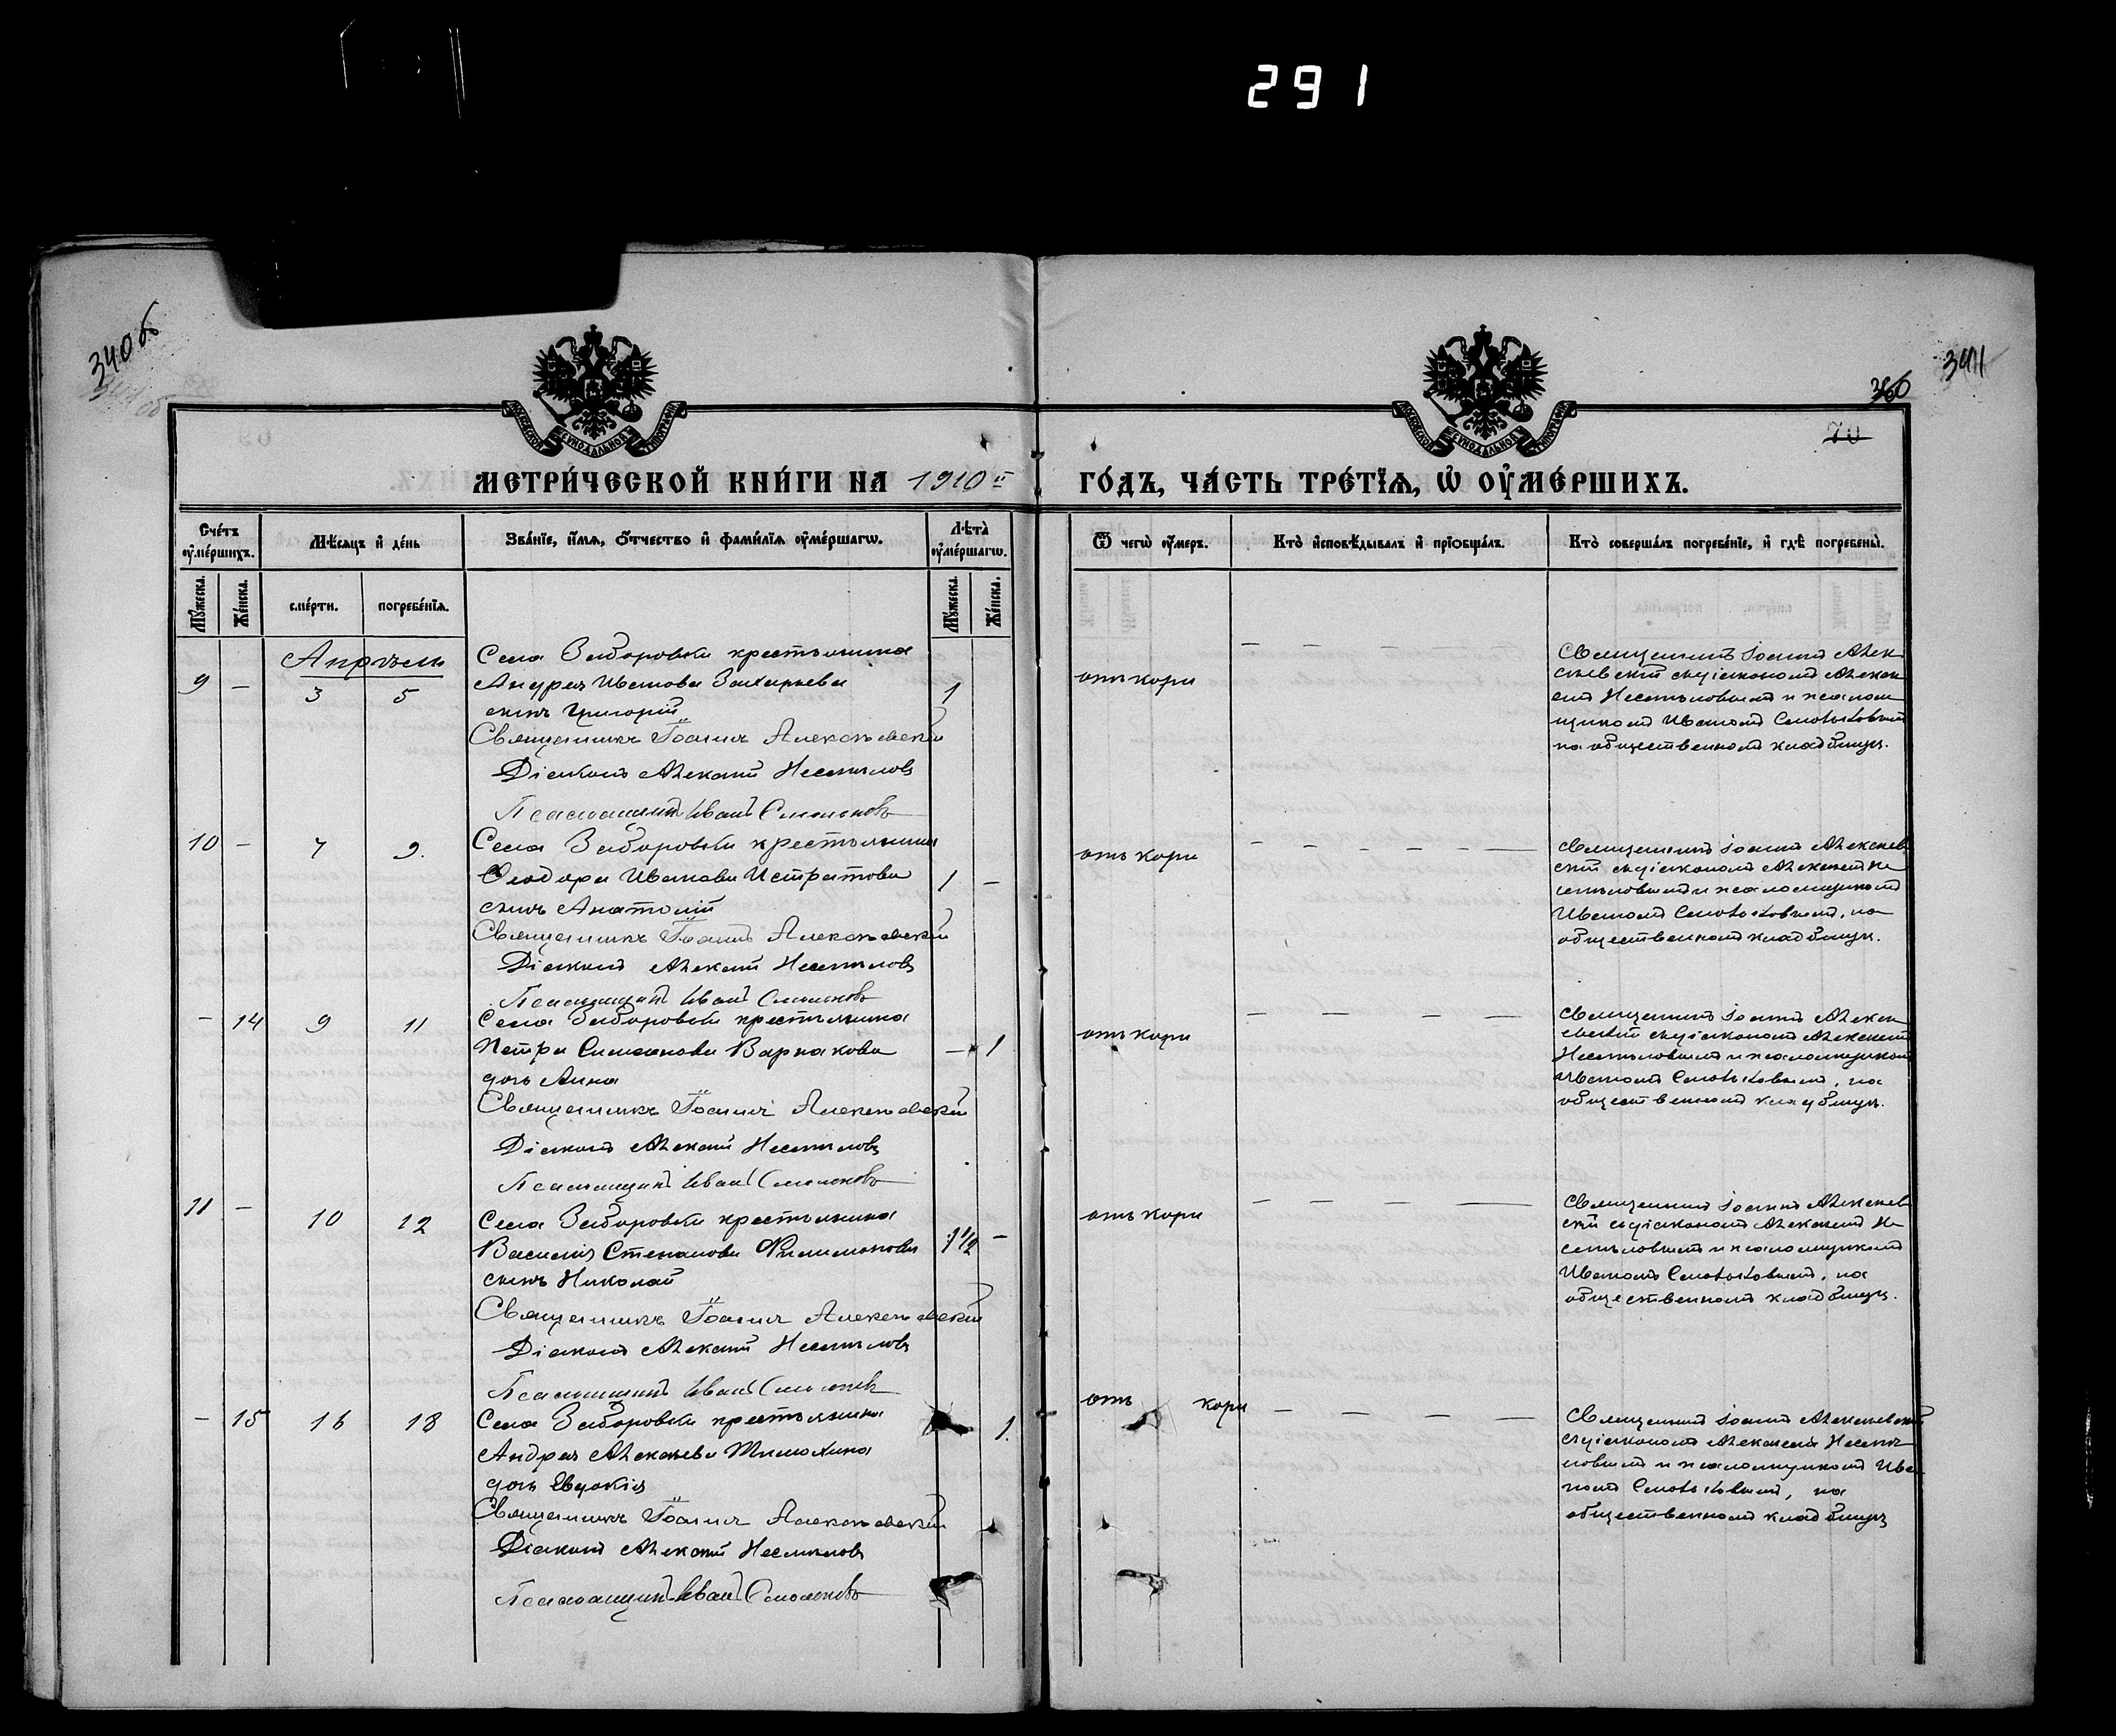 291
340 об
341
360
70
МЕТРИ́ЧЕСКОЙ КНИ́ГИ НА 1910 й
ГО́ДЪ, ЧА́СТЬ ТРЕ́ТЇѦ, Ѿ ОУ҆МЕ́РШИХЪ.
Сче́тъ оу҆ме́ршихъ.
Мѣ́сяцъ и҆ де́нь
Зва́нїе, и҆́мя, ѻ҆́тчество и҆ фами́лїя оу҆ме́ршагѡ.
Лѣта̀ оу҆ме́ршагѡ.
Мꙋ́жеска. Же́нска.
сме́рти. погребе́нїѧ.
Мꙋ́жеска. Же́нска.
Ѿ чегѡ̀ оу҆́меръ.
Кто̀ и҆сповѣ́дывалъ и҆ прїѻбща́лъ.
Кто̀ соверша́лъ погребе́нїе, и҆ гдѣ̀ погребены̀.
Апрѣль
9 — 3 5
Села Заборовки крестьянина
Андрея Иванова Захарьева
сынъ Григорій
1
Священникъ Іоаннъ Алексѣевскій
Діаконъ Алексѣй Несмѣловъ
Псаломщикъ Иванъ Смольковъ
отъ кори
— — — —
Священникъ Іоаннъ Алек
сѣевскій съ діакономъ Алексѣ
емъ Несмѣловымъ и псалом
щикомъ Иваномъ Смольковымъ
на общественномъ кладбищѣ.
10 — 7 9.
Села Заборовки крестьянина
Ѳеодора Иванова Истратова
сынъ Анатолій
1 —
Священникъ Іоаннъ Алексѣевскій
Діаконъ Алексѣй Несмѣловъ
Псаломщикъ Иванъ Смольковъ
отъ кори
— — — — — —
Священникъ Іоаннъ Алексѣев
скій съ діакономъ Алексѣемъ Не
смѣловымъ и псаломщикомъ
Иваномъ Смольковымъ, на
общественномъ кладбищѣ.
— 14 9 11
Села Заборовки крестьянина
Петра Симеонова Варнакова
дочь Анна
— 1
Священникъ Іоаннъ Алексѣевскій
Діаконъ Алексѣй Несмѣловъ
Псаломщикъ Иванъ Смольковъ
отъ кори
— — — — —
Священникъ Іоаннъ Алексѣ
евскій съ діакономъ Алексѣемъ
Несмѣловымъ и псаломщикомъ
Иваномъ Смольковымъ, на
общественномъ кладбищѣ.
11 — 10 12
Села Заборовки крестьянина
Василія Степанова Филимонова
сынъ Николай
1 1/2 —
Священникъ Іоаннъ Алексѣевскій
Діаконъ Алексѣй Несмѣловъ
Псаломщикъ Иванъ Смольковъ
отъ кори
— — — — —
Священникъ Іоаннъ Алексѣев
скій съ діакономъ Алексѣемъ Не
смѣловымъ и псаломщикомъ
Иваномъ Смольковымъ, на
общественномъ кладбищѣ.
— 15 16 18
Села Заборовки крестьянина
Андрея Алексѣева Тимохина
дочь Евдокія
1.
Священникъ Іоаннъ Алексѣевскій
Діаконъ Алексѣй Несмѣловъ
Псаломщикъ Иванъ Смольковъ
отъ кори
— — — — —
Священникъ Іоаннъ Алексѣевскій
съ діакономъ Алексѣемъ Несмѣ
ловымъ и псаломщикомъ Ива
номъ Смольковымъ, на
общественномъ кладбищѣ